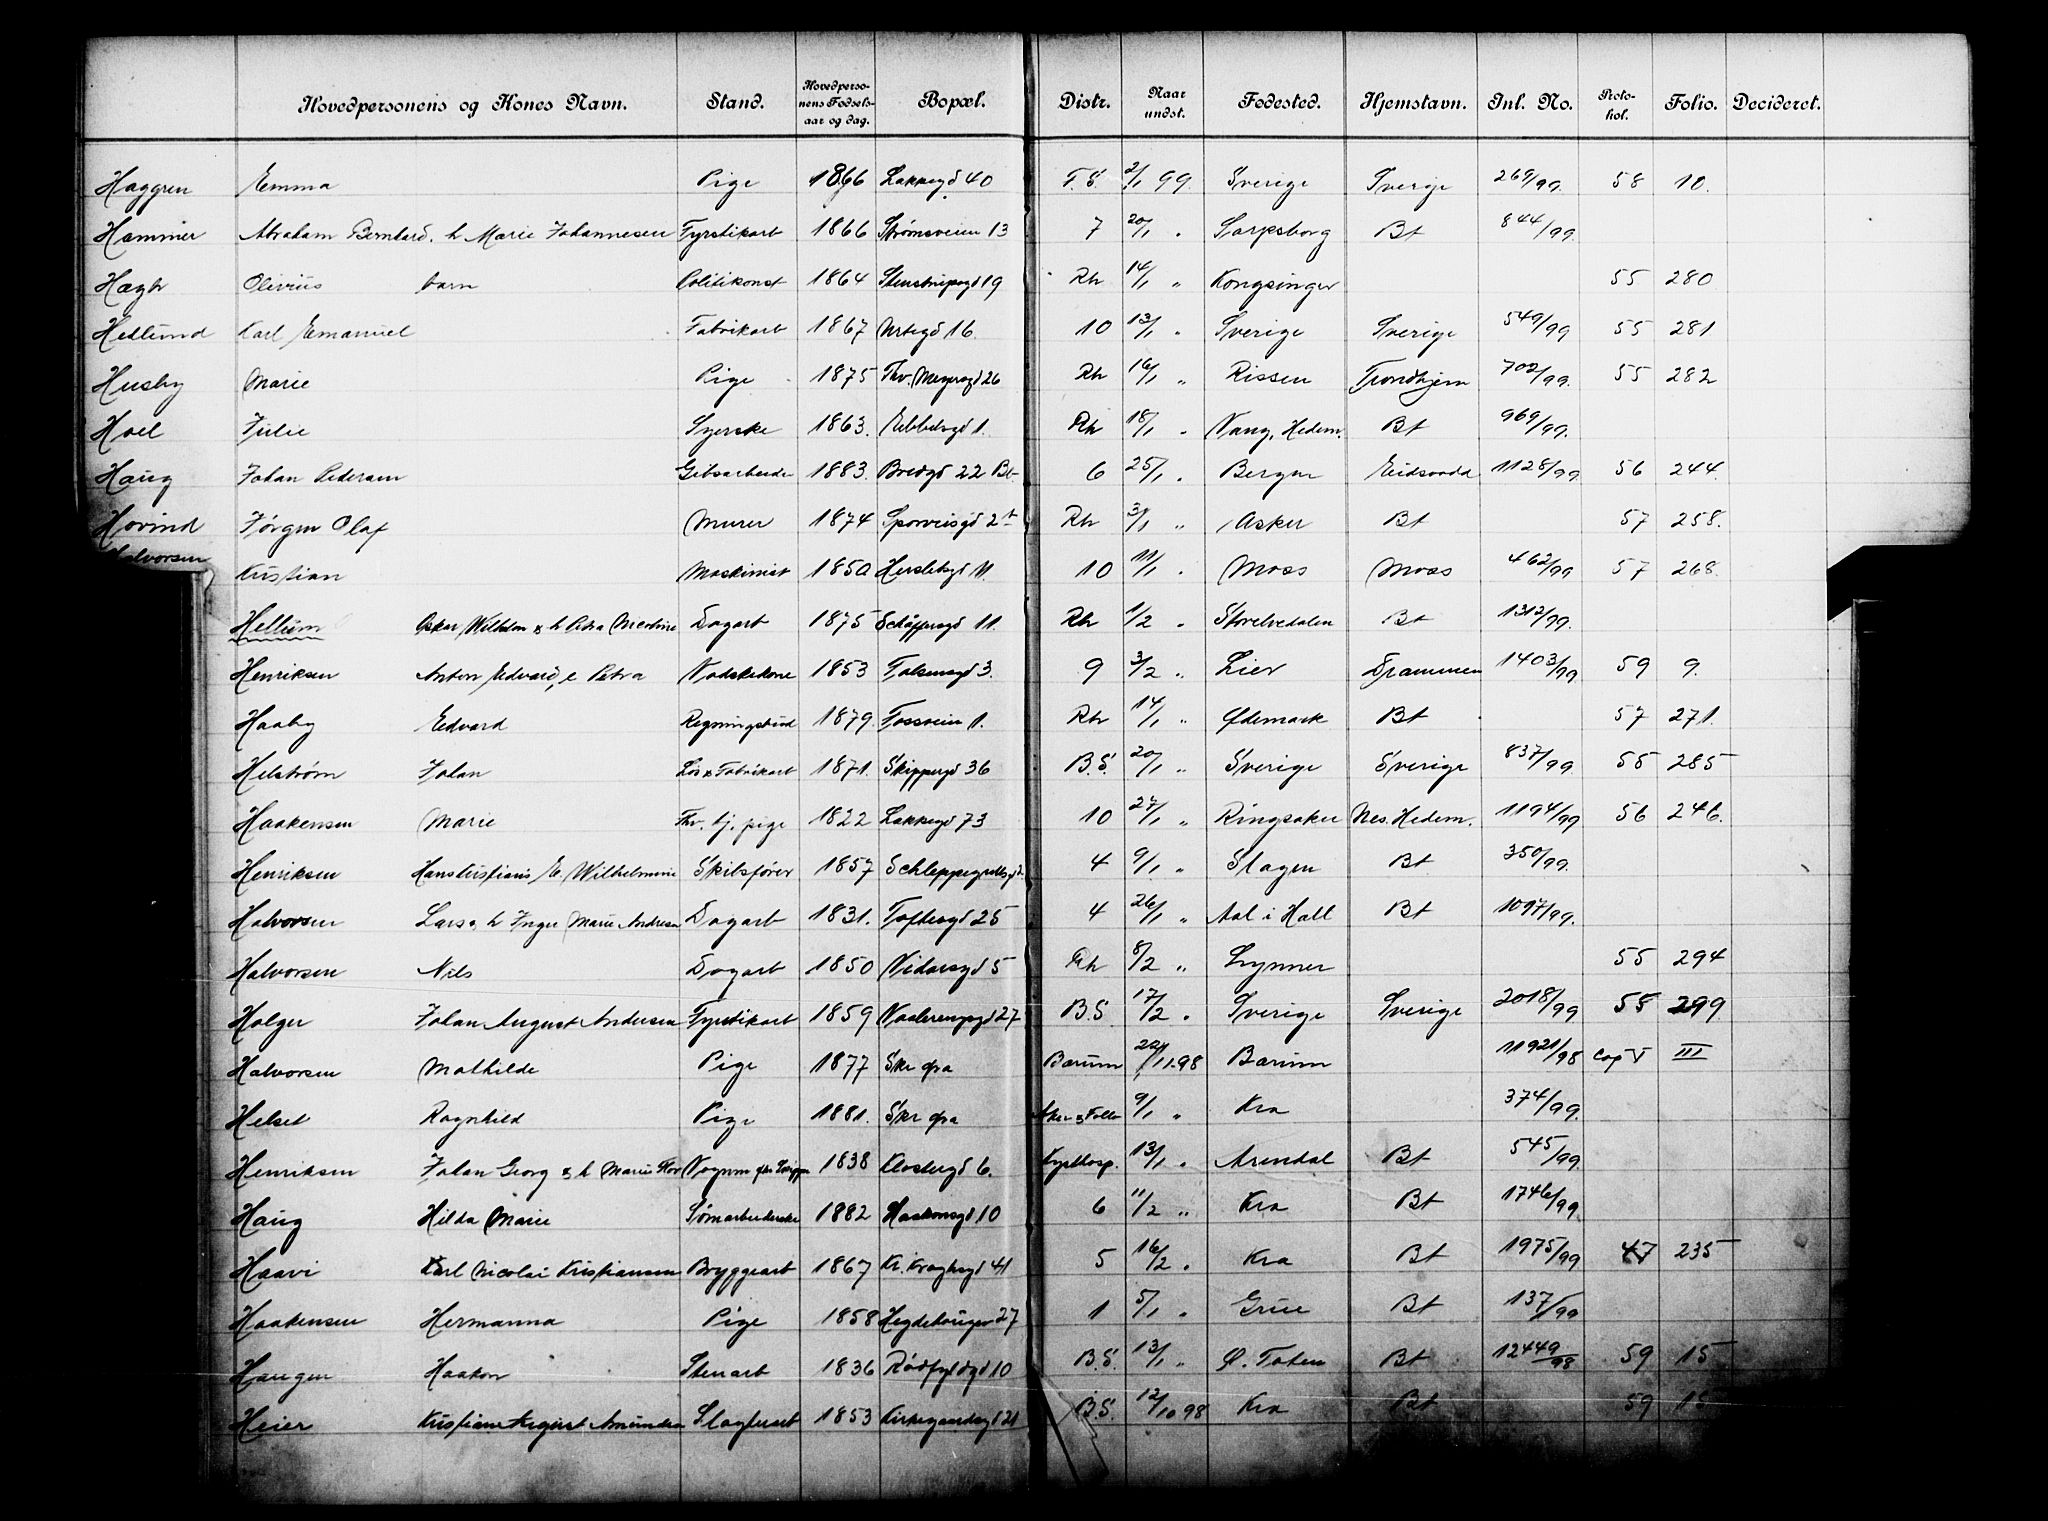 Hovedpersonens og Kones Navn. Stand. Hovedperso-nens Fødsels-aar og dag. Bopæl. Distr. Naar undst. Fødested. Hjemstavn. Inl. No. Proto-kol. Folio. Decideret.
Haggren Emma Pige 1866 Lakkegd 40 F.S. 2/1 99. Sverige Sverige 269/99. 58 10.
Hammer Abraham Berntard. h Marie Johannesen Fyrstikarb 1866 Strømsveien 13 7 20/1 " Sarpsborg Bt 844/99.
Hagh Olivius barn Politikonst 1864 Stenstrupsgd 19 Rh 14/1 " Kongsinger 55 280
Hedlund Karl Emanuel Fabrikarb 1867 Urtegd 16. 10 13/1 " Sverige Sverige 549/99 55 281
Husby Marie Pige 1875 Thv. Meyersgd 26 Rh 16/1 " Rissen Trondhjem 702/99. 55 282
Hoel Julie Syerske 1863. Ebbelsgd 1. Rh 18/1 " Vang, Hedem. Bt 969/99.
Haug Johan Pedersen Gibsarbeider 1883. Bredgd 22 Bt 6 25/1 " Bergen Eidsvold 1128/99 56 244.
Hovind Jørgen Olaf Murer 1874 Sporveisgd 2b Rh 3/1 " Asker Bt 57 258.
Halvorsen Kristian Maskinist 1850 Herslebsgd 11. 10 11/1 " Moss Moss 462/99 57 268.
Hellum Oskar Wilhelm & h Petra Martine Dagarb 1875 Schäffersgd 11. Rh 1/2 " Storelvedalen Bt 1312/99.
Henriksen Anton Edvard, e Petra Vadskekone 1853 Falsensgd 3. 9 3/2 " Lier Drammen 1403/99 59 9.
Haaby Edvard Regningsbud 1879. Fossvein 1. Rh 14/1 " Ødemark Bt 57 271.
Helstrøm Johan Løs & Fabrikarb 1871. Skippergd 36 B.S. 20/1 " Sverige Sverige 837/99. 55 285
Haakensen Marie Fhv. tj. pige 1822 Lakkegd 73 10 27/1 " Ringsaker Nes. Hedem. 1194/99 56 246.
Henriksen Hans Kristians E. Wilhelmine Skibsfører 1857 Schleppegrellsgd 2. 4 9/1 " Slagen Bt 350/99.
Halvorsen Lars & h Inger Marie Andresen Dagarb 1831. Toftesgd 25 4 26/1 " Aal i Hall Bt 1097/99.
Halvorsen Nils Dagarb 1850 Vidarsgd 5 Rh 8/2 " Lynner 55 294
Holger Johan August Andersen Fyrstikarb 1859 Vaalerenggd 27 B.S. 17/2 " Sverige Sverige 2018/99 58 299
Halvorsen Mathilde Pige 1877 Skr fra Bærum 22/11.98 Bærum 11921/98 Cop V III
Helset Ragnhild Pige 1881. Skr fra Aker & Follo 9/1 " Kra 374/99.
Henriksen Johan Georg & h Marie Flor Vognm før Skipp 1838 Klostergd 6. 13/1 " Arendal Bt 545/99.
Haug Hilda Marie Sømarbeiderske 1882 Haakonsgd 10 6 11/2 " Kra Bt 1746/99.
Haavi Karl Nicolai Kristiansen Bryggearb 1867 Kr. Kroghsgd 41 5 16/2 " Kra Bt 1975/99 47 235
Haakensen Hermanna Pige 1858 Hegdehaugen 27 1 5/1 " Grue Bt 137/99
Haugen Haakon Stenarb 1836 Rødfyldgd 10 B.S. 13/1 " Ø. Toten Bt 12449/98 59 15
Heier Kristian August Amundsen Slagterarb 1853 Kirkegaardsgd 21 B.S. 12/10 98 Kra Bt 59 15